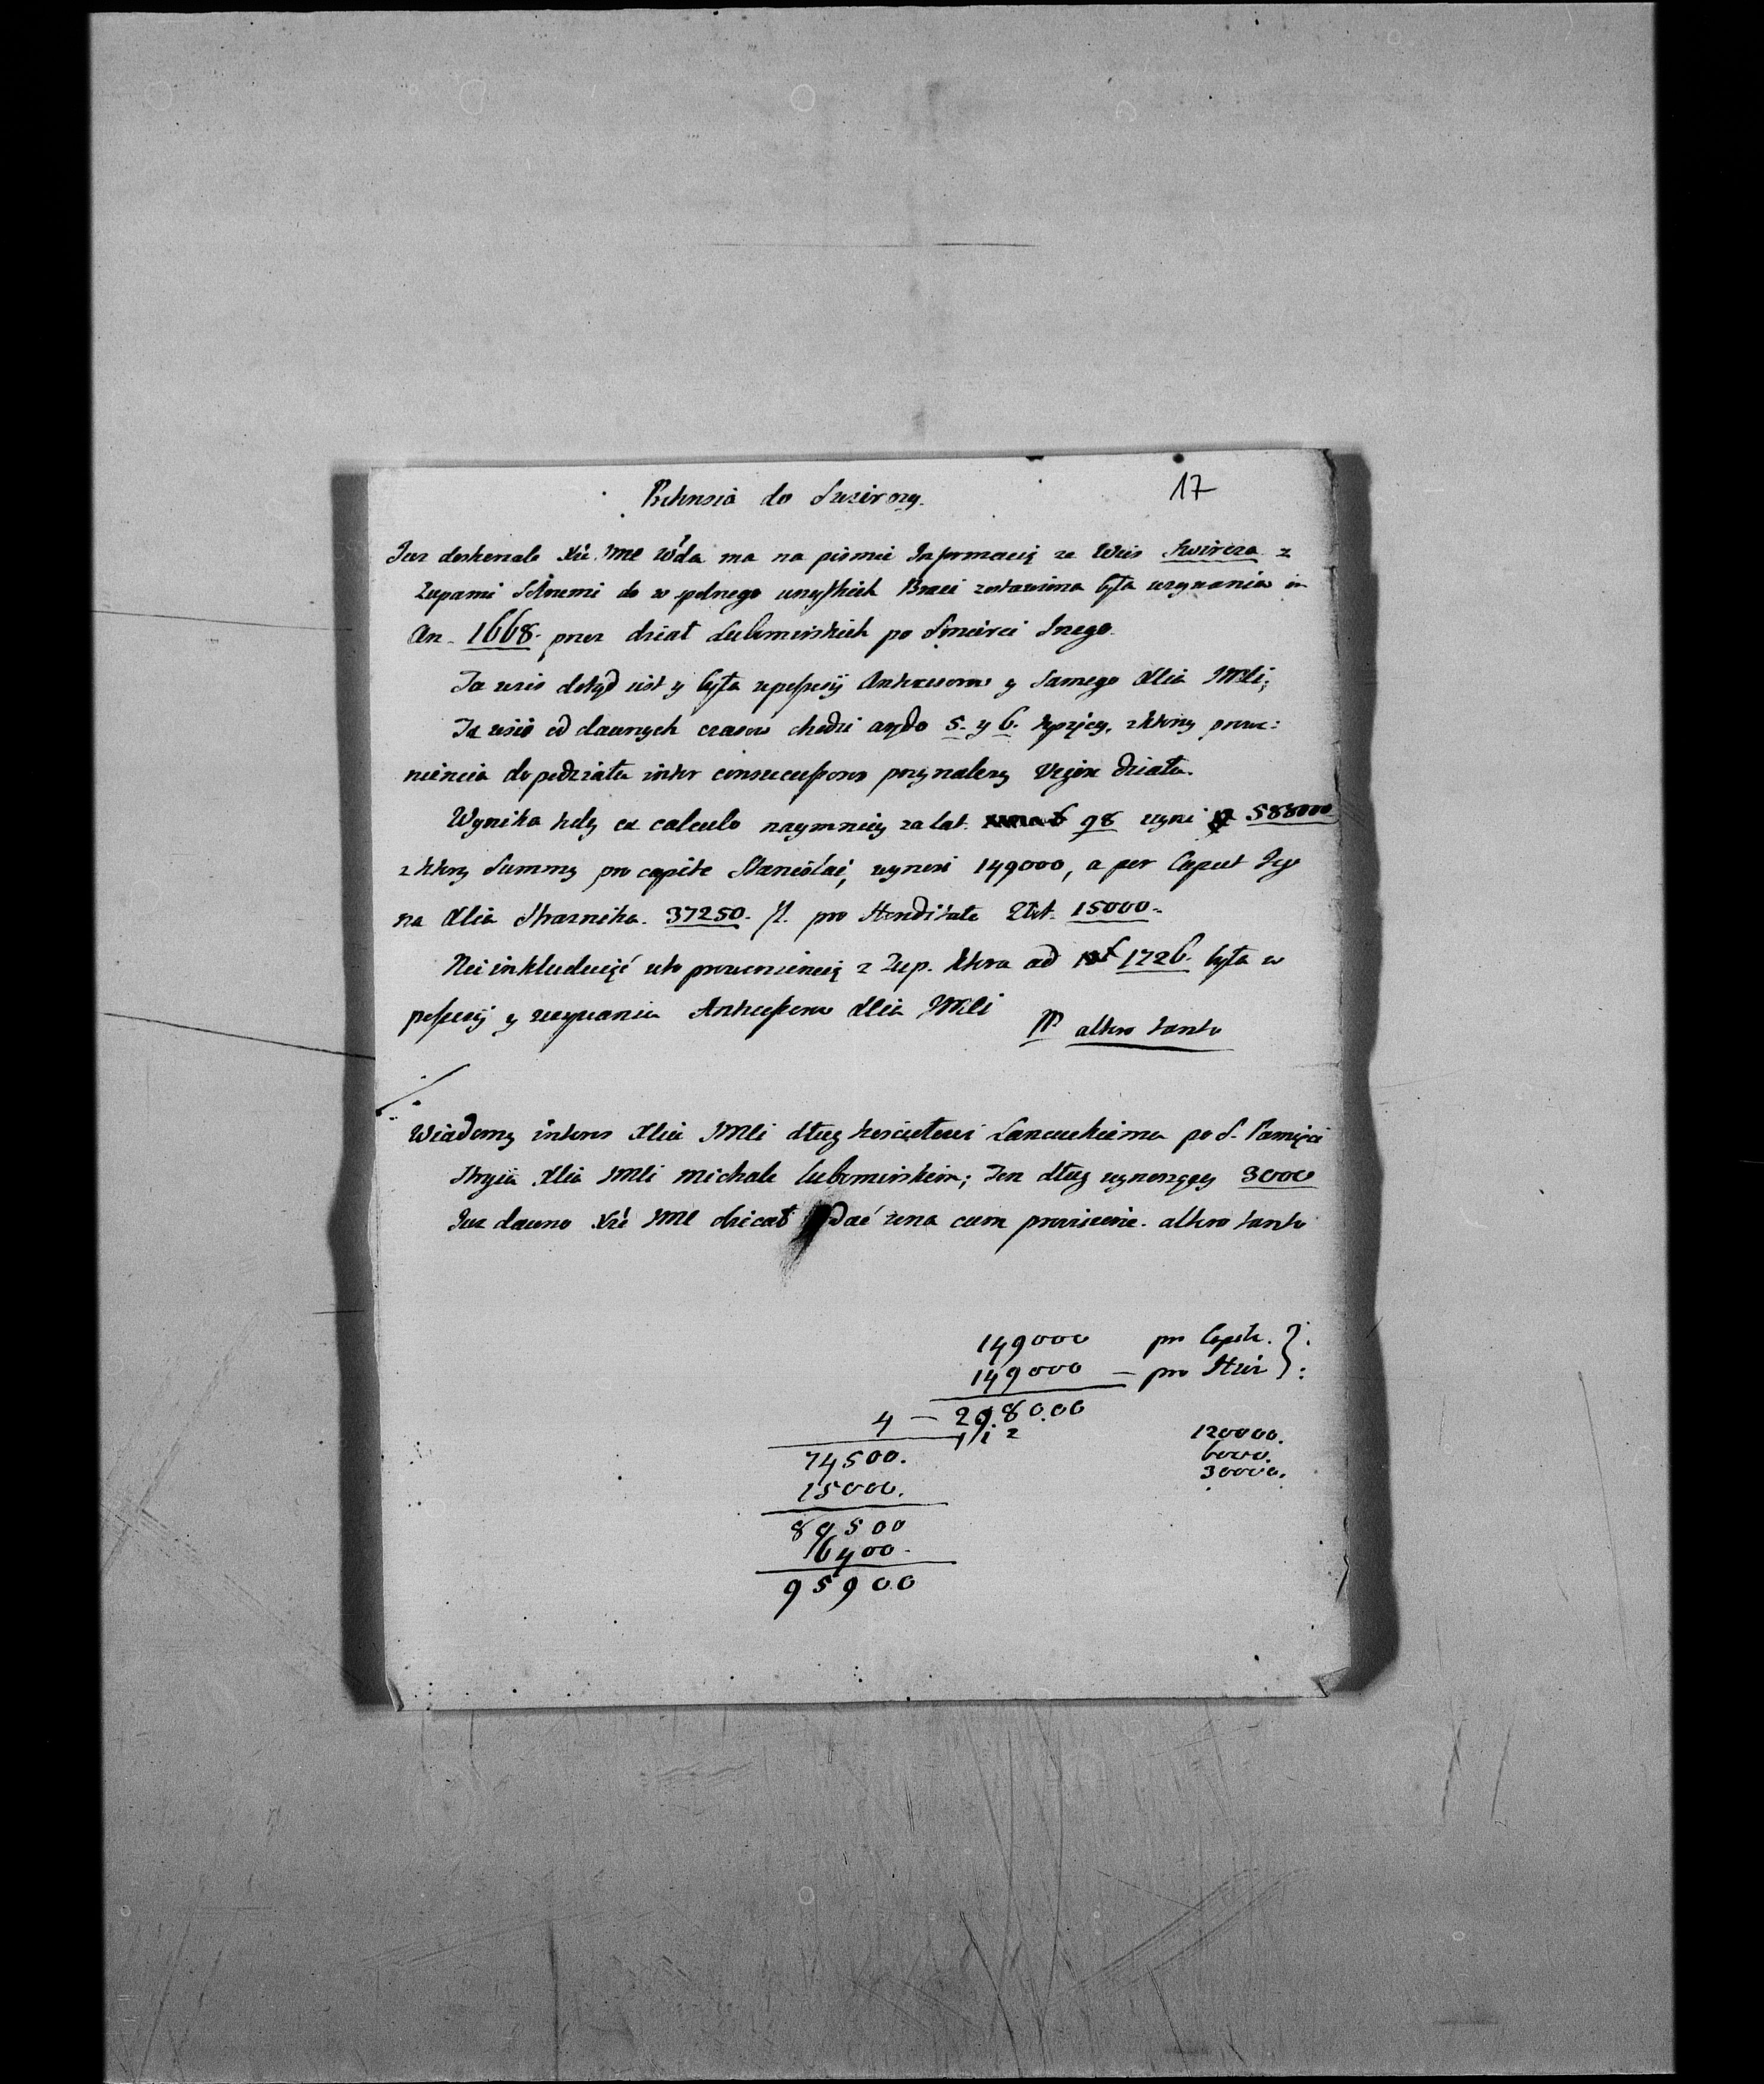 Pretensia do Swirczy.
17
Juz doskonale Xżę JMC Wda ma na pismie Informacią ze Wieś Swircza z
Zupami Solnemi do wspolnego wszystkich Braci zostawiona była uzywania in
An. 1668. przez dział Lubomirskich po Smierci
Ta wies dotąd iest y była w possesij Antecessorow y samego Xcia JMCi;
Ta wieś od dawnych czasow chodzi 5. y 6. tysięcy, z ktory prowe:
niencia do podziału inter consuccessores przynalezy Vigore działu.
Wynika tedy ex calculo naymniey za lat 98 czyni 588000
z ktory Summy pro capite Stanislai, wynosi 149000, a per Caput
na Xcia Straznika. 37250. fl. pro 15000.
Nie inkluduiąc w to proweniencią z Zup. ktora ad 1726. była w
possesij y uzywaniu Antecessorow Xcia JMCi
altero tanto
Wiadomy interes Xcia JMCi dług kosciołowi Lancuckiemu po S. Pamięci
Stryiu Xcia JMCi Michale Lubomirskim; Ten dług wynoszący 3000
Juz dawno Xżę JMC obiecał dać una cum provisione. altero tanto
149000 pro Capite.
149000 — pro
4 — 298000
74500.
15000.
89500
6400.
95900
120000.
6000.
30000.